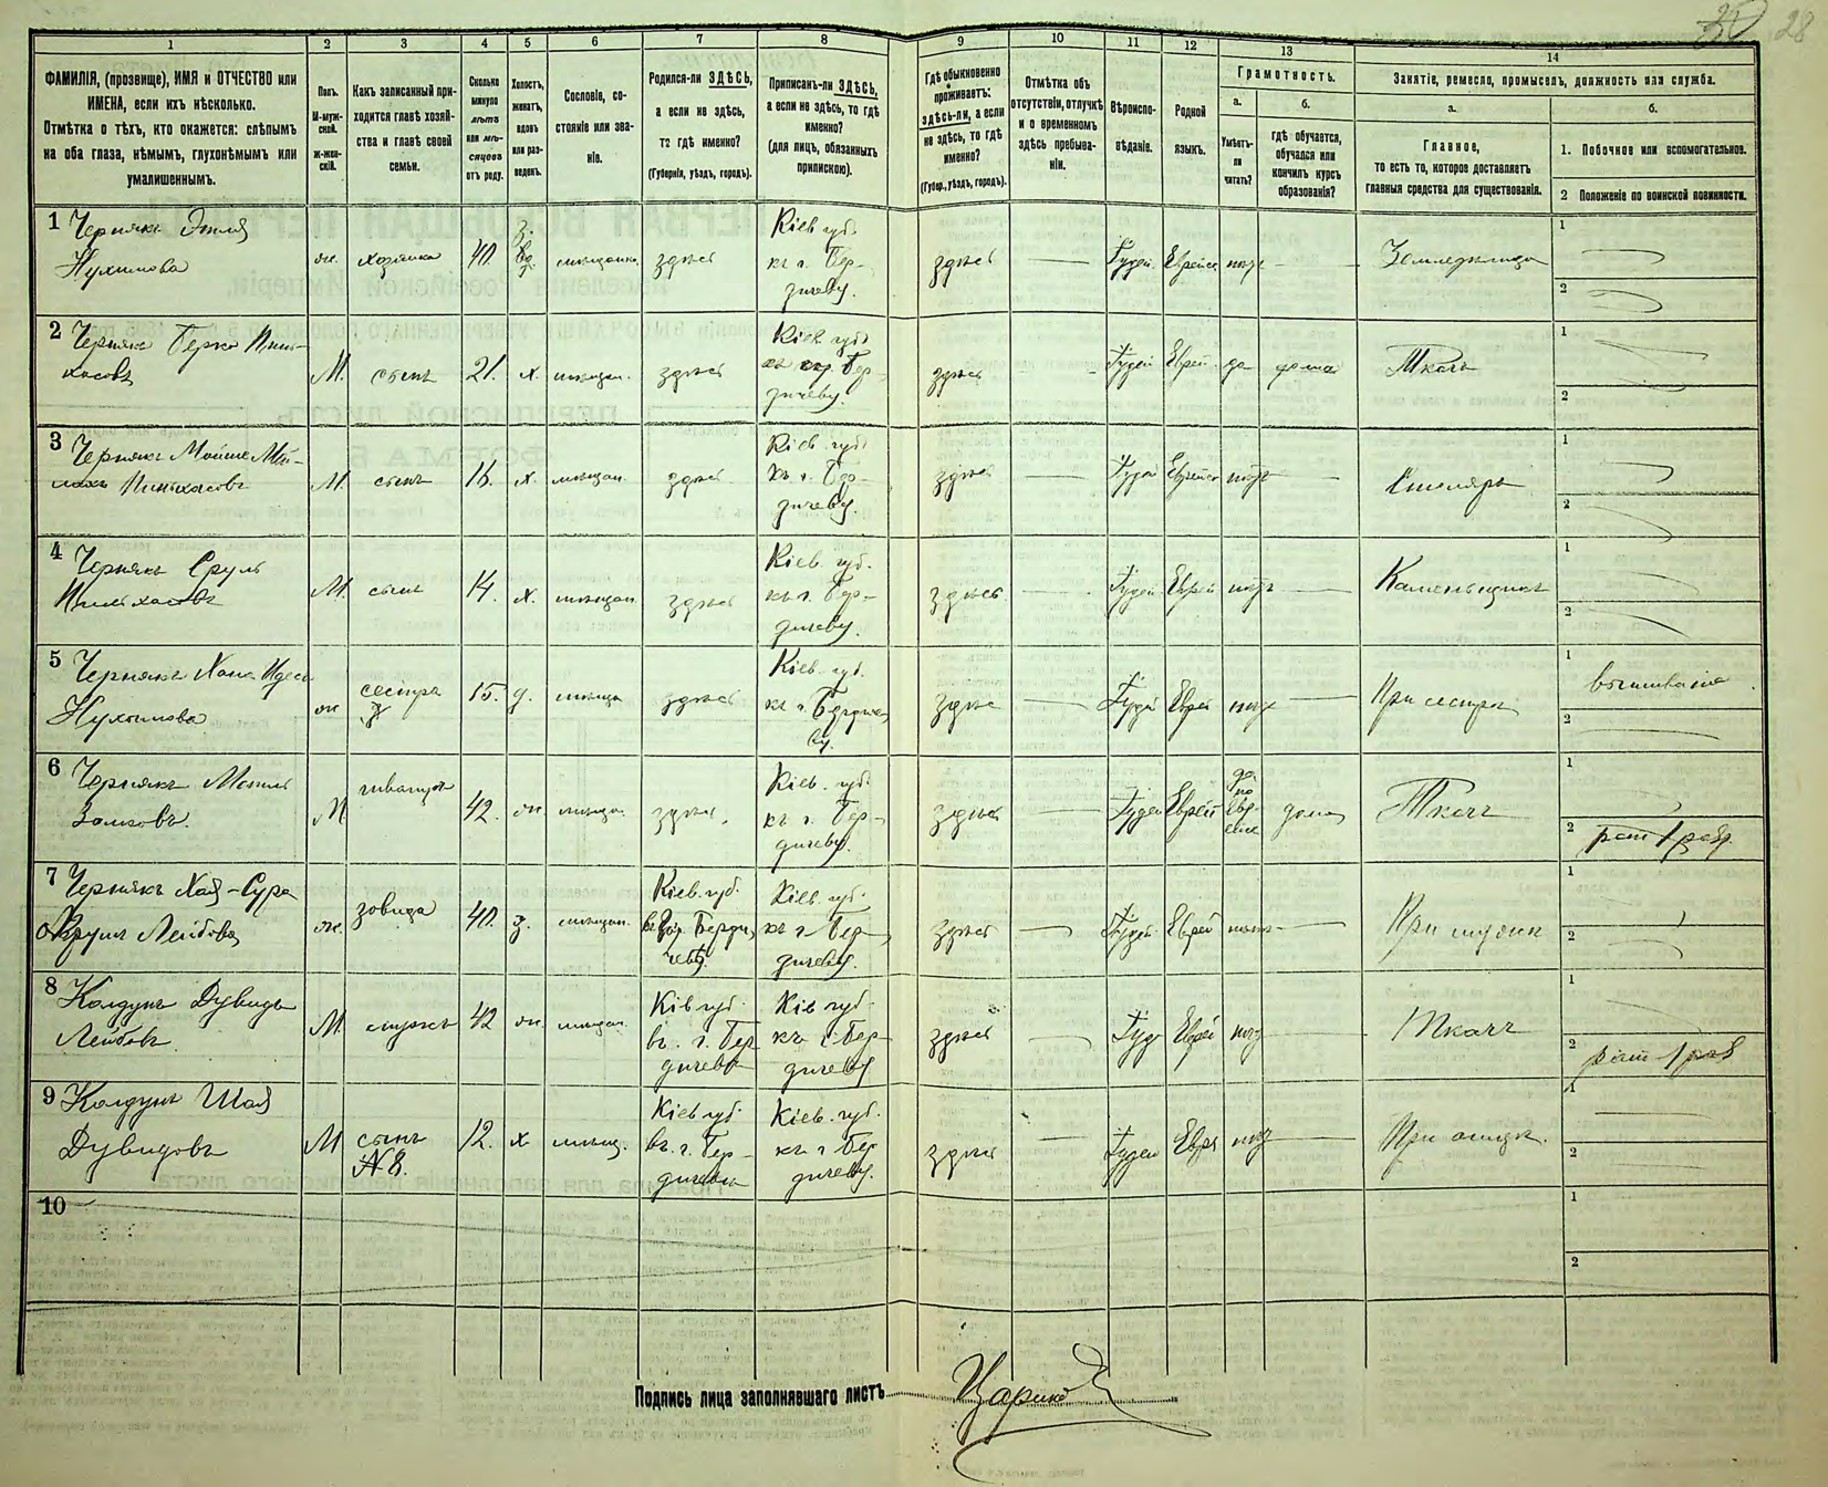 30 28
1 2 3 4 5 6 7 8 9 10 11 12 13 14
ФАМИЛІЯ, (прозвище), ИМЯ и ОТЧЕСТВО или
ИМЕНА, если ихъ нѣсколько.
Отмѣтка о тѣхъ, кто окажется: слѣпымъ
на оба глаза, нѣмымъ, глухонѣмымъ или
умалишеннымъ.
Полъ.
М-муж-
ской.
Ж-жен-
скій.
Какъ записанный при-
ходится главѣ хозяй-
ства и главѣ своей
семьи.
Сколько
минуло
лѣтъ
или мѣ-
сяцевъ
отъ роду.
Холостъ,
женатъ,
вдовъ
или раз-
веденъ.
Сословіе, со-
стояніе или зва-
ніе.
Родился-ли ЗДѢСЬ,
а если не здѣсь,
то гдѣ именно?
(Губернія, уѣздъ, городъ).
Приписанъ-ли ЗДѢСЬ,
а если не здѣсь, то гдѣ
именно?
(для лицъ, обязанныхъ
припискою).
Гдѣ обыкновенно
проживаетъ:
здѣсь-ли, а если
не здѣсь, то гдѣ
именно?
(Губер., уѣздъ, городъ).
Отмѣтка объ
отсутствіи, отлучкѣ
и о временномъ
здѣсь пребыва-
ніи.
Вѣроиспо-
вѣданіе.
Родной
языкъ.
Грамотность.
а. б.
Умѣетъ-
ли
читать?
гдѣ обучается,
обучался или
кончилъ курсъ
образованія?
Занятіе, ремесло, промыселъ, должность или служба.
а. б.
Главное,
то есть то, которое доставляетъ
главныя средства для существованія.
1. Побочное или вспомогательное.
2 Положеніе по воинской повинности.
1 Чернякъ
Нухимова
ж. хозяйка 40. вд. мѣщанка здѣсь
Кіев. губ.
къ г. Бер-
дичеву.
здѣсь Іудей. Еврейс. нѣтъ
1
2
2 Чернякъ Берко Пинь-
хасовъ
М. сынъ 21. х. мѣщан. здѣсь
Кіев. губ.
Бер-
дичеву.
здѣсь Іудей Еврей да дома Ткачъ
1
2
3 Чернякъ Мойше
Пиньхасовъ
М. сынъ х. мѣщан. здѣсь
Кіев. губ.
къ г. Бер-
дичеву.
здѣсь Іудей Еврейс нѣтъ Столяръ
1
2
4 Чернякъ Сруль
Пиньхасовъ
М. сынъ 14. х. мѣщан. здѣсь
Кіев. губ.
къ г. Бер-
дичеву.
здѣсь Іудей Еврей нѣтъ Каменьщикъ
1
2
5 Чернякъ Хана
Нухимова
ж. сестра 15. д. здѣсь
Кіев. губ.
къ г. Бердиче
ву.
здѣсь Іудей Еврей нѣтъ При сестрѣ
1
2
6 Чернякъ
М 42. ж здѣсь.
Кіев. губ.
къ г. Бер-
дичеву.
здѣсь Іудей Еврей
да
по
Евр-
ейс
дома Ткачъ
1
2 рат 1 разр.
7 Чернякъ Хая-Сура
Лейбова
ж. зовица 40. з. мѣщан.
Кіев. губ.
Берди
чевѣ.
Кіев. губ.
къ г Бер
дичеву.
здѣсь Іудей. Еврей нѣтъ При мужѣ
1
2
8 Колдунъ Дувидъ
Лейбовъ
М. мужъ 42 ж. мѣщан.
Кіев губ.
въ г. Бер
дичевѣ
Кіев губ.
къ г. Бер-
дичеву
здѣсь Іуд Еврей нѣт Ткачъ
1
2 рат 1 раз
9 Колдунъ Шая
Дувидовъ
М сынъ
№ 8.
12. х мѣщ.
Кіев губ.
въ. г. Бер-
дичевѣ
Кіев. губ.
къ г Бер
дичеву.
здѣсь Іудей Евре нѣт При отцѣ.
1
2
10
1
2
Подпись лица заполнявшаго листъ